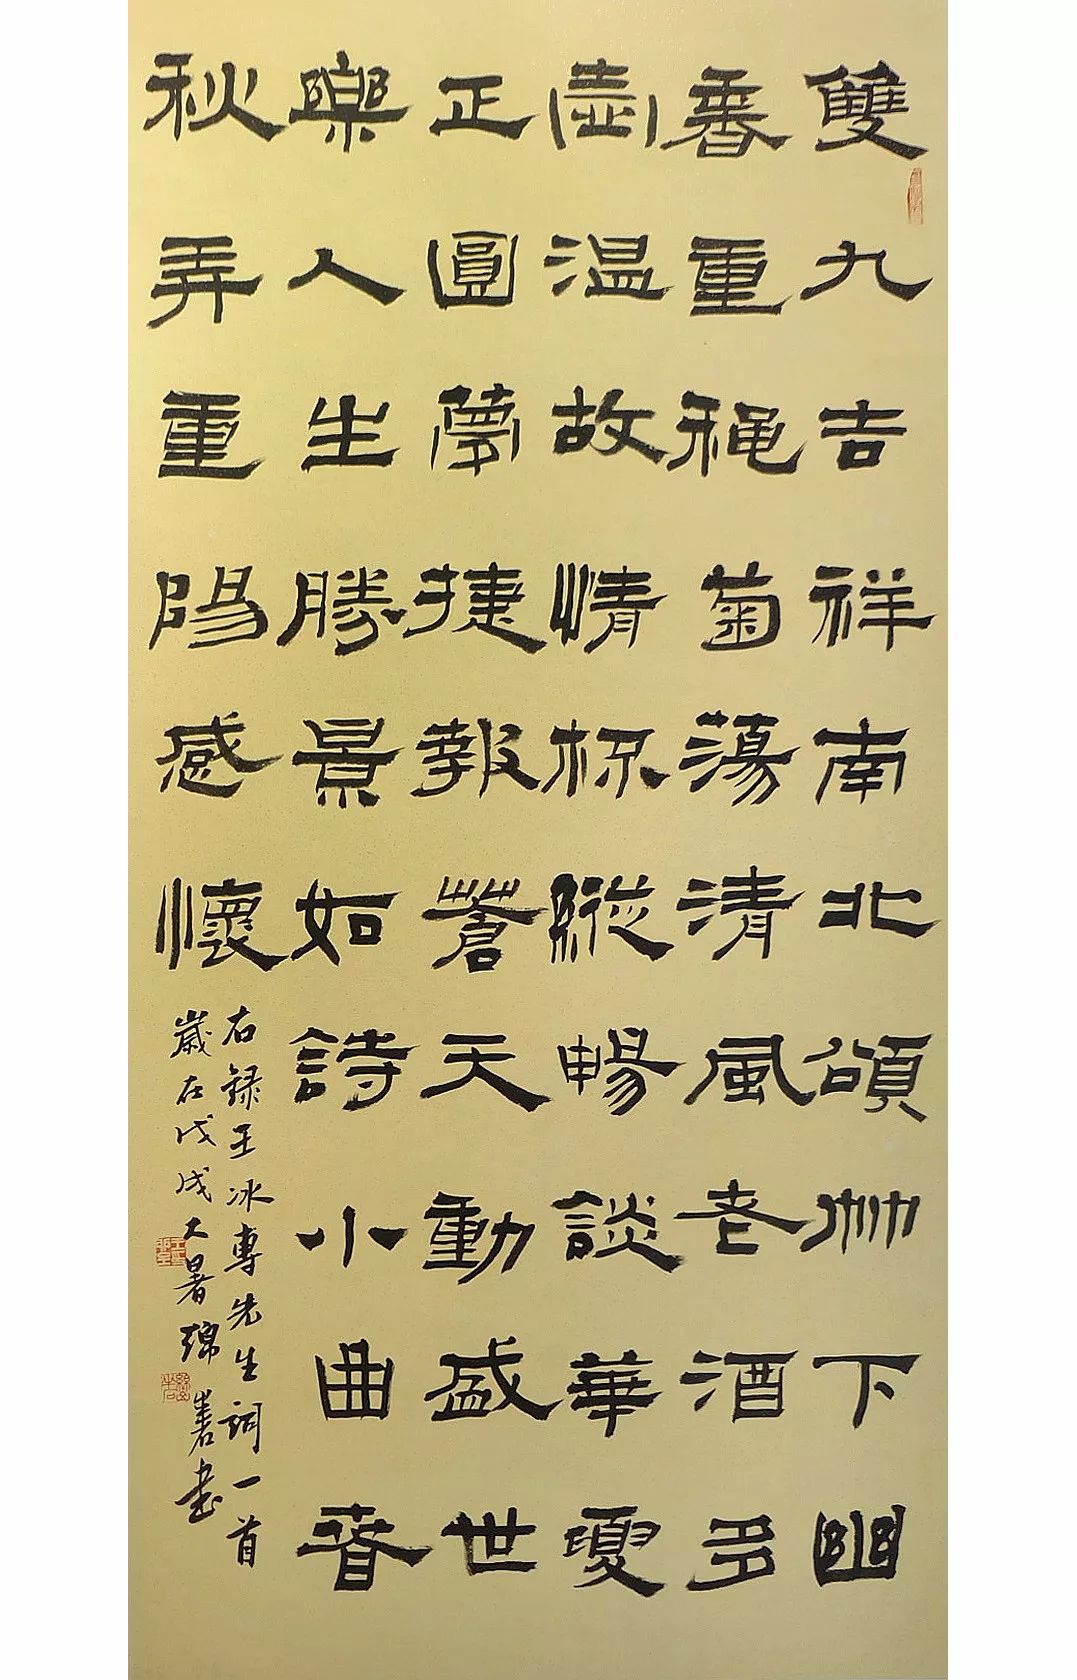 雙九吉祥南北頌竹下幽
香重穐菊蕩清風老酒多
壺溫故情杯縱暢談華夏
正圓夢捷報蒼天動盛世
樂人生勝景如詩小曲春
秋弄重陽感懷
右錄王冰專先生詞一首
歲在戊戌大暑書